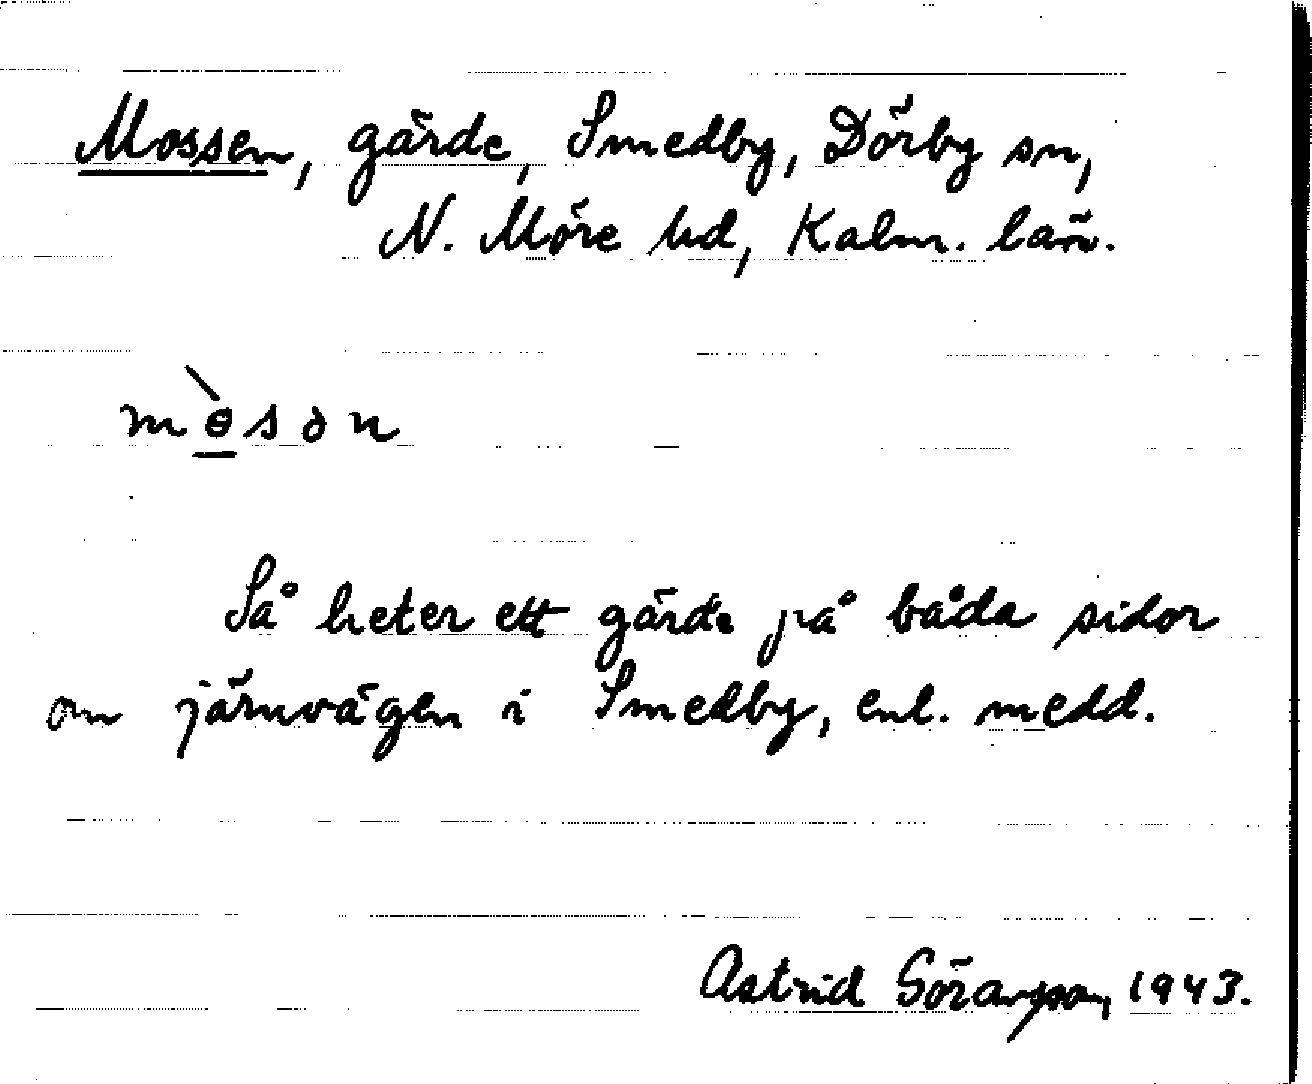 Mossen, gärde, Smedby, Dörby sn,
N. Möre hd, Kalm. län.
mɵ̀sən
Så heter ett gärde på båda sidor
om järnvägen i Smedby, enl. medd.
Astrid Göransson, 1943.